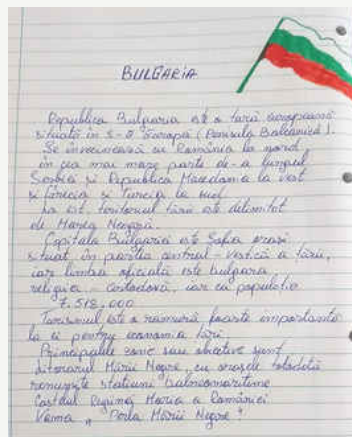 BULGARIA
Republica Bulgaria este o țară europeană
situată în S-E Europa (Penisula Balcanică).
Se învecinează cu România la nord
în cea mai mare parte de-a lungul
Serbia și Republica Macedonia la vest
și Grecia și Turcia la sud.
La est, teritoriul țării este delimitat
de Marea Neagră.
Capitala Bulgariei este Sofia oraș
situat în partea central-vestică a țării,
iar limba oficială este bulgara
religia - ortodoxă, iar ca populație
7.518.000
Turismul este o ramură foarte importantă
la ei pentru economia țării.
Principalele zone sau obiective sunt
litoralul Mării Negre, cu orașele totodată
renumite stațiuni balneomaritime
Castelul Reginei Maria a României
Varna „Perla Mării Negre"